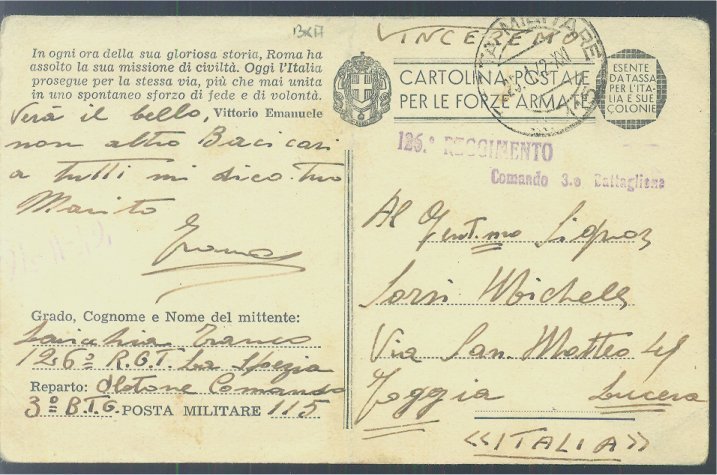 BXA
In ogni ora della sua gloriosa storia, Roma ha
assolto la sua missione di civiltà. Oggi l'Italia
prosegue per la stessa via, più che mai unita
in uno spontaneo sforzo di fede e di volontà.
Vittorio Emanuele
Verà il bello,
non altro Baci cari
a tutti mi dico tuo
Marito
Franco
Grado, Cognome e Nome del mittente:
Franco
126º R.G.T. La Spezia
Reparto: Plotone Comando
3º B.T.G. POSTA MILITARE 115
VINCEREMO
CARTOLINA POSTALE
PER LE FORZE ARMATE
MILITARE
115
ESENTE
DA TASSA
PER L'ITA-
LIA E SUE
COLONIE
126.º REGGIMENTO
Comando 3.o Battaglione
Al Gent.mo Signor
Sorsi Michele
Via San Matteo 41
Foggia Lucera
«ITALIA»